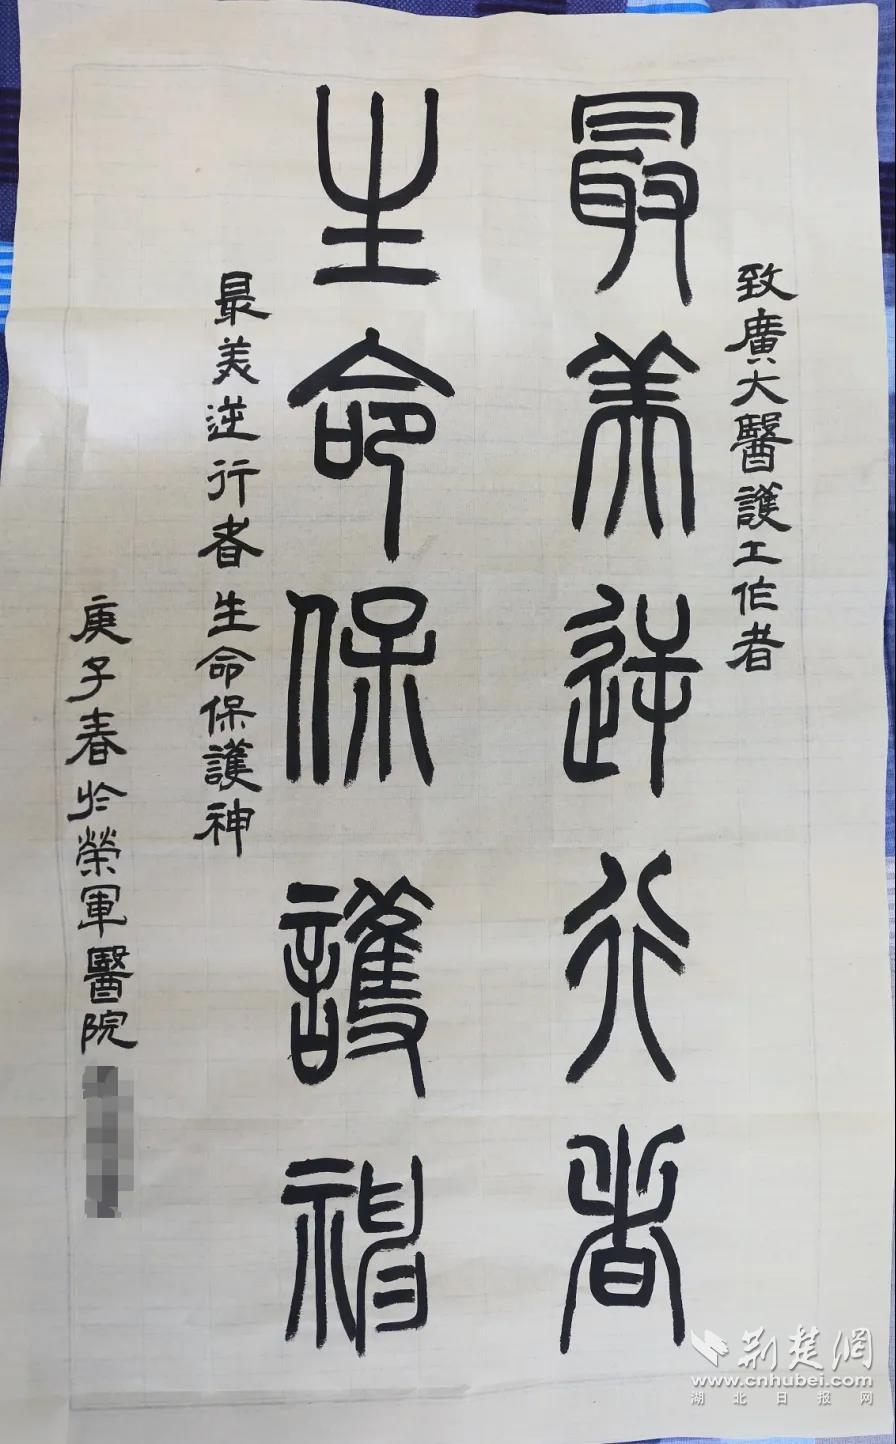 致廣大醫護工作者
最美逆行者
生命保護神
最美逆行者生命保護神
庚子春於榮軍醫院
荆楚網
www.cnhubei.com
湖北日报网